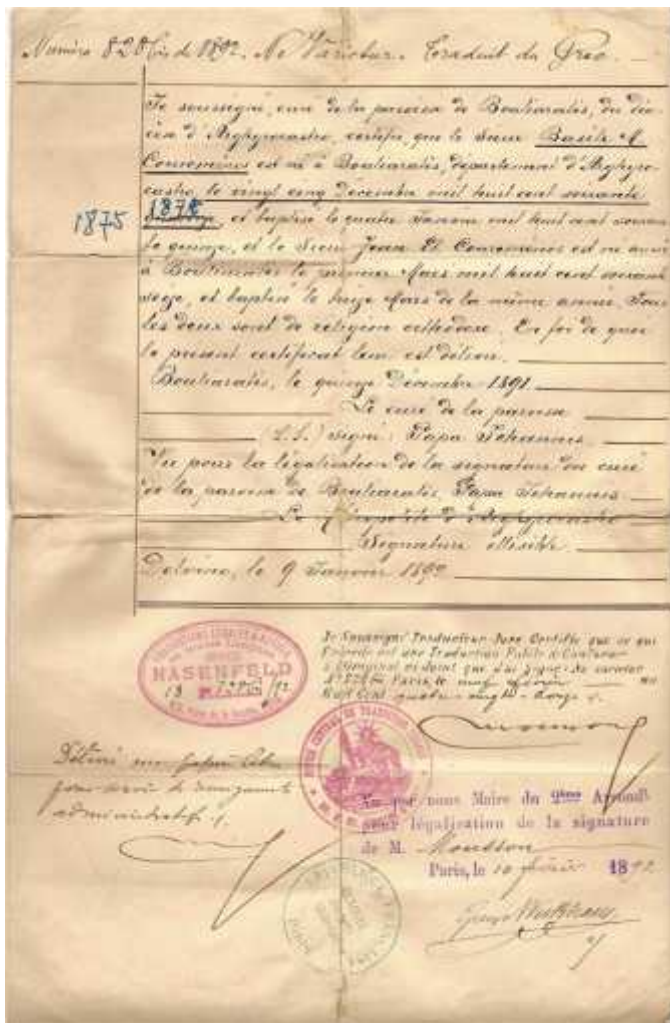 Numéro 828 bis de 1892. Ne Varietur. Traduit du Grec.
Je soussigné, curé de la paroisse de Boutiaratès, du dio-
cèse d'Arghyrocastro, certifie, que le Sieur Basile
est né à Boutiaratès, département d'Arghyro-
castro, le vingt cinq Décembre mil huit cent soixante
1875
1874 et baptisé le quatre Janvier mil huit cent soixan-
te quinze, et le Sieur Jean est né aussi
à Boutiaratès le premier Mars mil huit cent soixante
seize, et baptisé le treize Mars de la même année. Tous
les deux sont de religion orthodoxe. En foi de quoi
le present certificat leur est délivré.
Boutiaratès, le quinze Décembre 1891.
Le curé de la paroisse
(L.S.) signé: Papa Johannes.
Vu pour la légalisation de la signature du curé
de la paroisse de Boutiaratès Papa Johannes
Le
Signature illisible.
Delvino, le 9 Janvier 1892
Je Soussigné Traducteur-Juré Certifie que ce qui
Précède est une Traduction Fidèle & Conforme
à l'Original
Paris, le neuf février
Huit Cent quatre-vingt-douze
HASENFELD
Délivré sur papier libre
pour servir de renseignements
administratifs
Vu par nous Maire du 2ème Arrondt
pour légalisation de la signature
de M. Mousson
Paris, le 10 février 1892